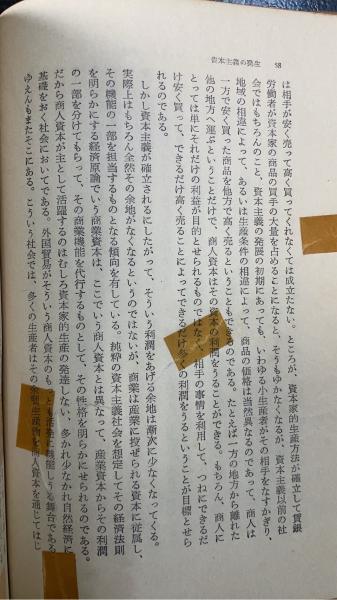 資本主義の発生 58
は相手が安く売って高く買ってくれなくては成立たない。ところが、資本家的生産方法が確立して賃銀
労働者が資本家の商品の買手の大量を占めることになると、そうもゆかなくなるが、資本主義以前の社
会ではもちろんのこと、資本主義の発展の初期にあっても、いわゆる小生産者がその相手をなすかぎり、
地域の相違によって、あるいは生産条件の相違によって、商品の価格は当然異なるのであって、商人は
一方で安く買った商品を他方で高く売るということもできるのである。たとえば一方の地方から離れた
他の地方へ運ぶということだけで、商人資本はその資本の利潤をうることができる。もちろん、商人に
とっては単にそれだけの利益が目的とせられるものではなく、相手の事情を利用して、つねにできるだ
け安く買って、できるだけ高く売ることによってできるだけ多くの利潤をうるということが目標とせら
れるのである。
しかし資本主義が確立されるにしたがって、そういう利潤をあげる余地は漸次に少なくなってくる。
実際上はもちろん全然その余地がなくなるというのではないが、商業は産業に投ぜられる資本に従属し、
その機能の一部を担当するものとなる傾向を有している。純粋の資本主義社会を想定してその経済法則
を明らかにする経済原論でいう商業資本は、ここでいう商人資本とは異なって、産業資本からその利潤
の一部を分けてもらって、その商業機能を代行するものとして、その性格を明らかにせられるのである。
だから商人資本が主として活躍するのはむしろ資本家的生産の発達しない、多かれ少なかれ自然経済に
基礎をおく社会においてである。外国貿易がそういう商人資本のもっとも活発に機能しうる舞台である
ゆえんもまたそこにある。こういう社会では、多くの生産者はその 生産物を商人資本を通じてはじ